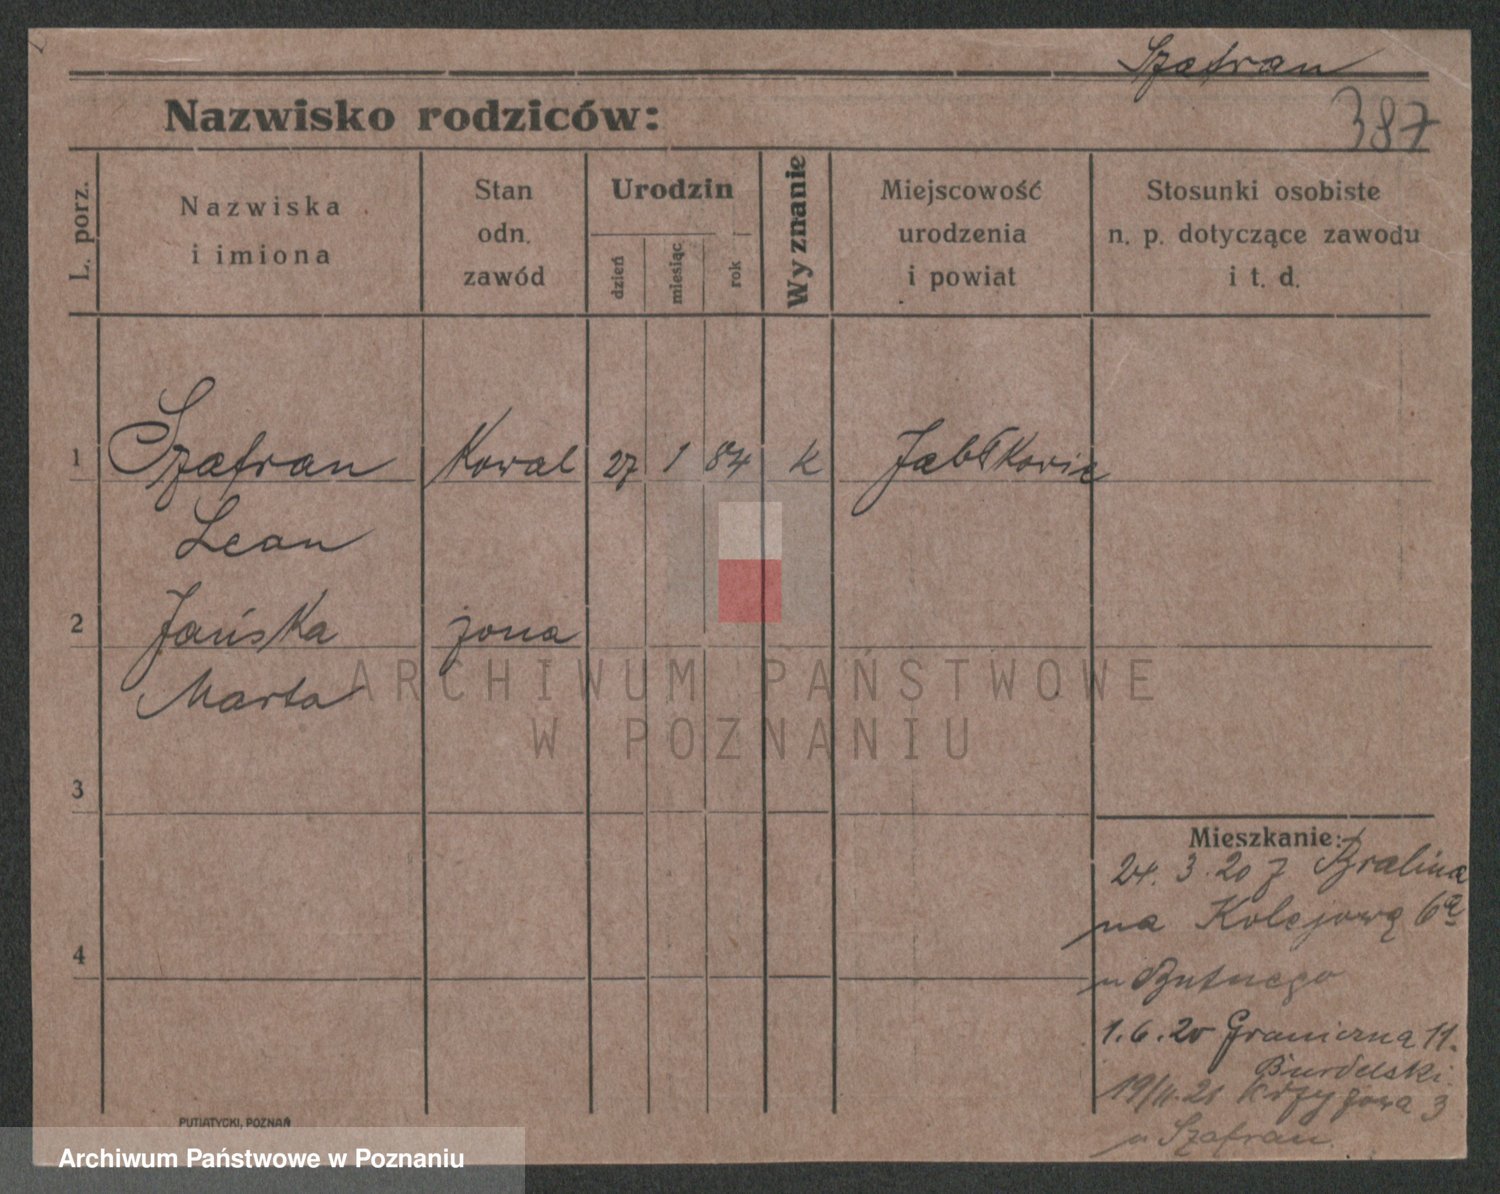 Szafran
387
Nazwisko rodziców:
L. porz.
Nazwiska
i imiona
Stan
odn.
zawód
Urodzin
dzień
miesiąc
rok
Wyznanie
Miejscowość
urodzenia
i powiat
Stosunki osobiste
n. p. dotyczące zawodu
i t. d.
1 Szafran Kowal 27 1 84 k
Leon
2 Jańska żona
Marta
3
4
Mieszkanie:
24. 3. 20 z Berlina
na Kolejową 6a
u
1.6.20 Graniczna 11.
19/11.21 Krzyżowa 3
u Szafran
PUTIATYCKI, POZNAŃ
ARCHIWUM PAŃSTWOWE
W POZNANIU
Archiwum Państwowe w Poznaniu